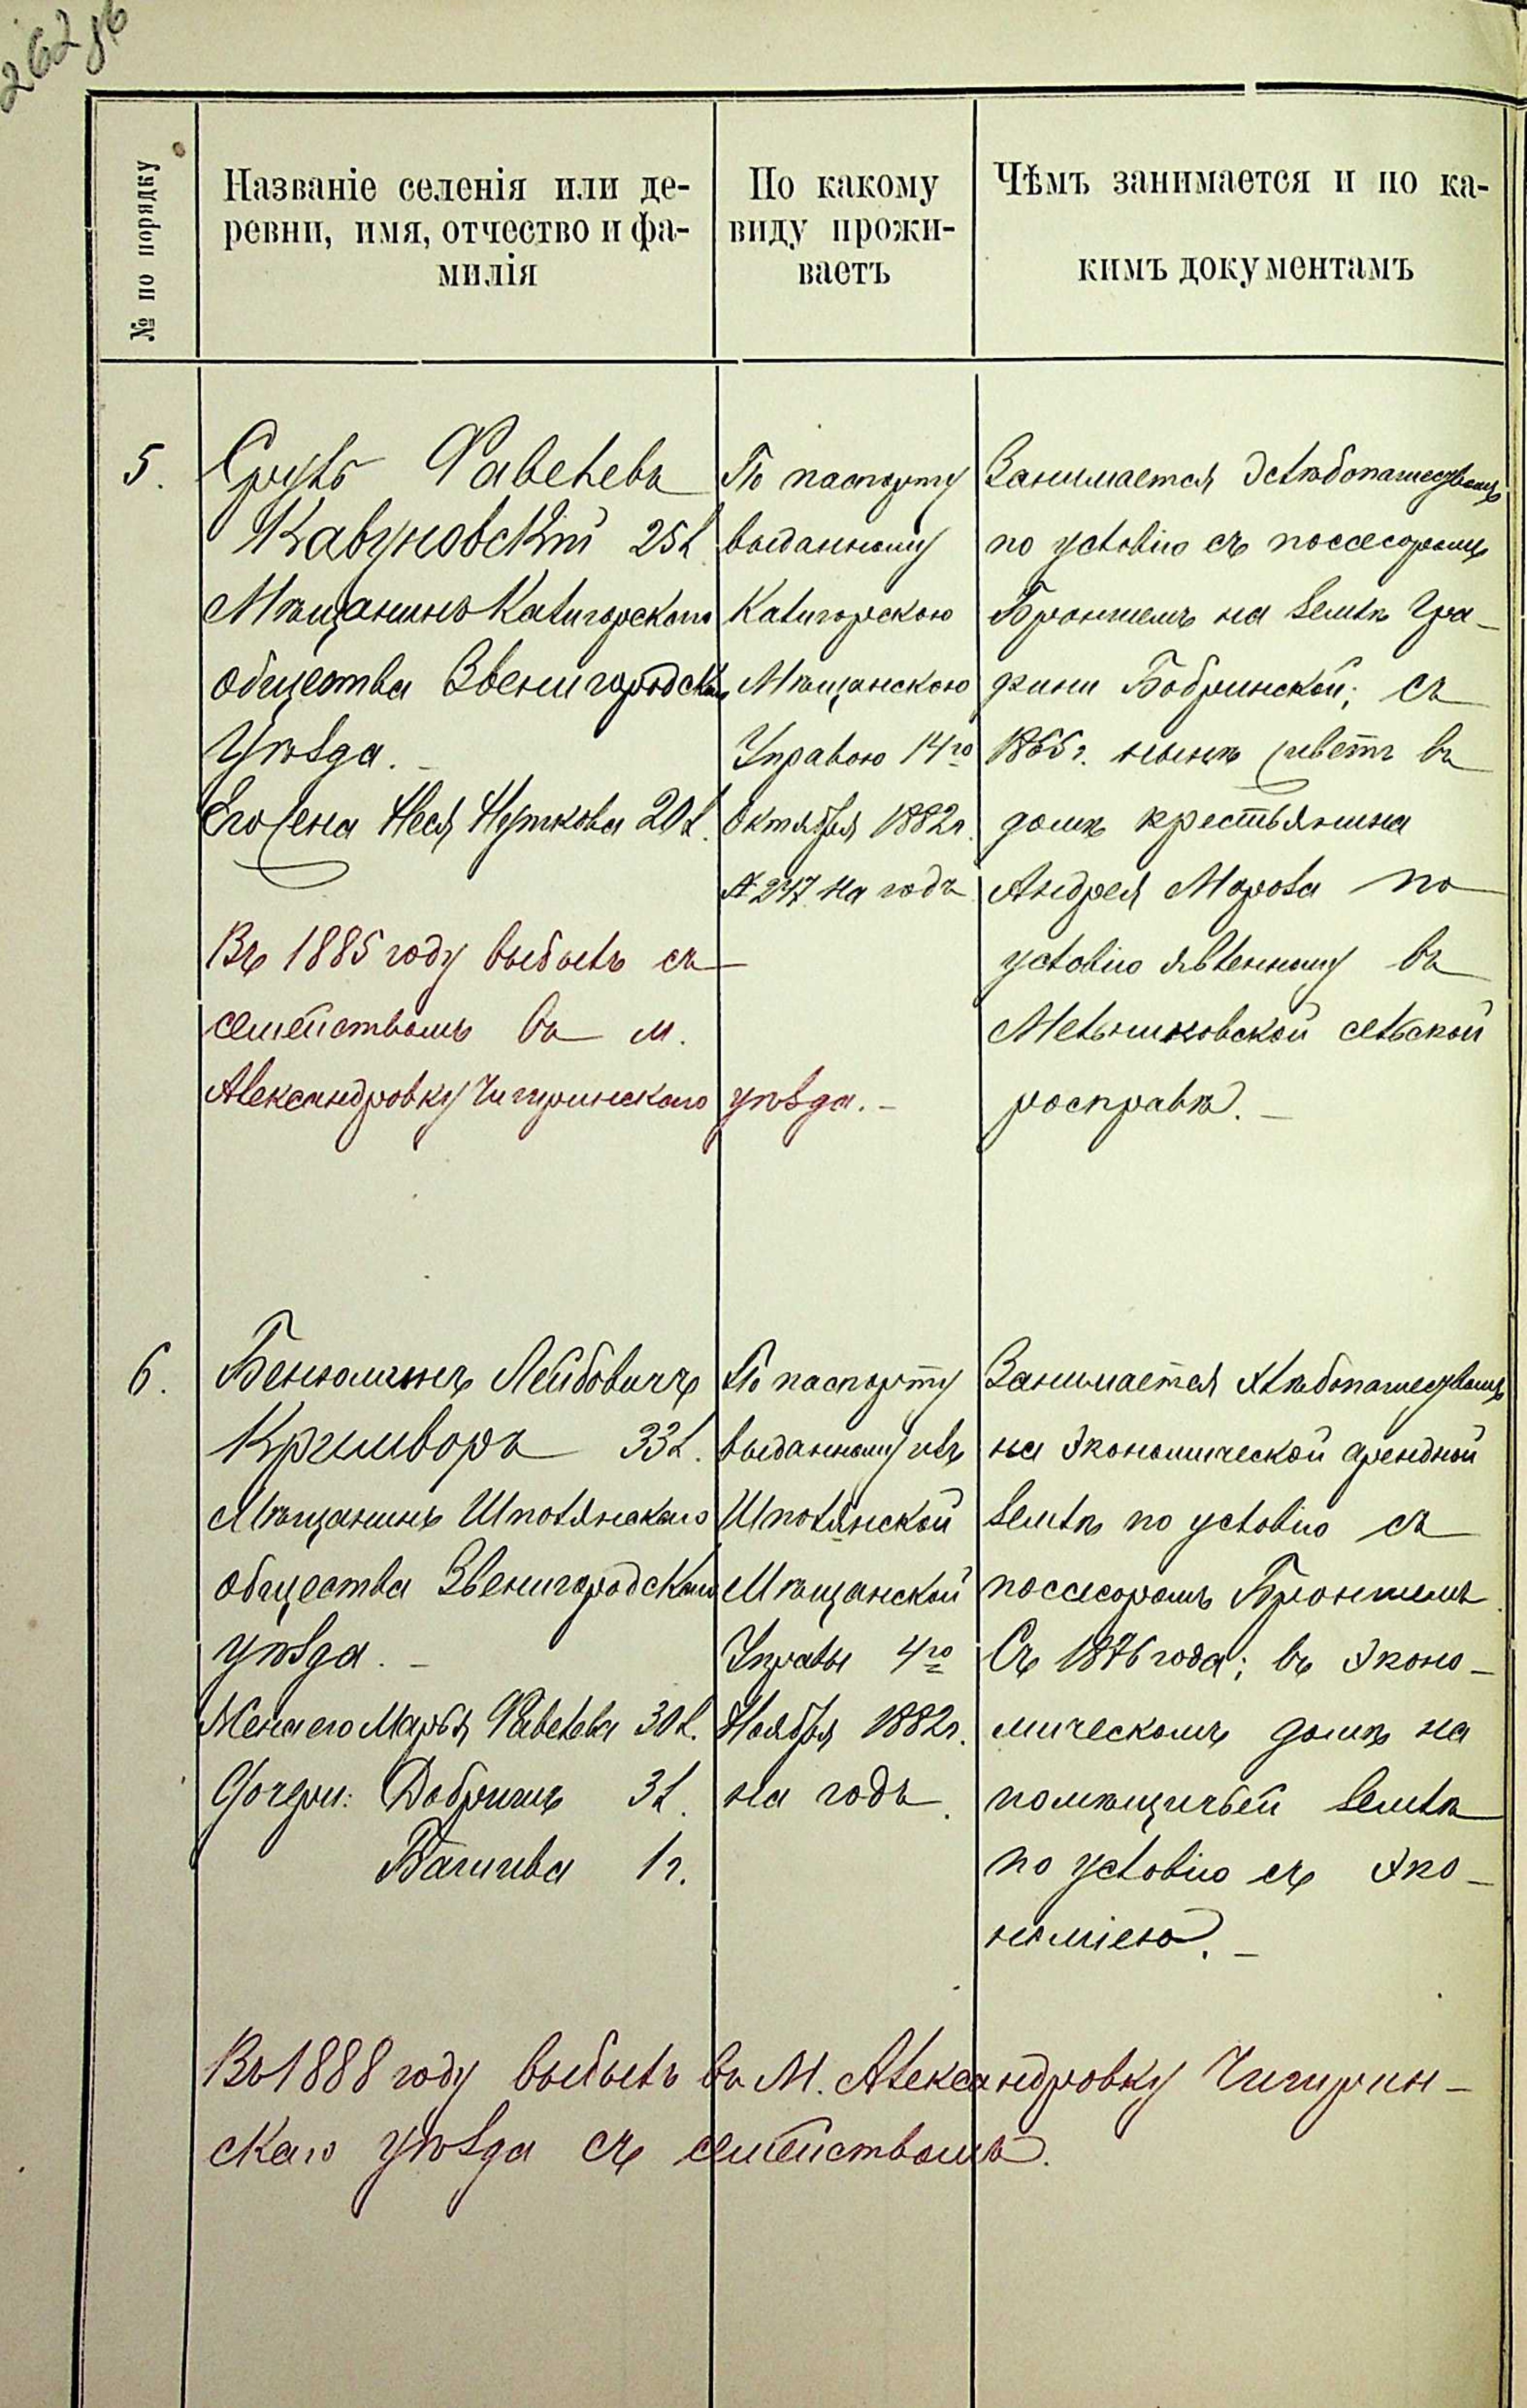 262 об
№ по порядку
Названіе селенія или де-
ревни, имя, отчество и фа-
милія
По какому
виду прожи-
ваетъ
Чѣмъ занимается и по ка-
кимъ документамъ
5.
Сруль Фавелевъ
Кавуновскій 25 л
Мѣщанинъ Калигорскаго
общества Звенигородскаго
Уѣзда. –
Его жена Неся Нуткова 20 л.
По паспорту
выданному
Калигорскою
Мѣщанскою
Управою 14го
Октября 1882 г.
№ 247 на годъ
Занимается хлѣбопашествомъ
по условію съ поссесоромъ
Бронштемъ на землѣ Гра-
фини Бобринской; съ
1865 г. нынѣ живетъ въ
домѣ крестьянина
Андрея Мороза по
условію явленному въ
Мельниковской сельской
росправѣ. –
Въ 1885 году выбылъ съ
семействомъ въ м.
Александровку Чигиринскаго уѣзда. –
6.
Беніоминъ Лейбовичъ
Кримворъ 33 л.
Мѣщанинъ Шполянскаго
общества Звенигородскаго
уѣзда. –
Жена его Марья Фавелева 30 л.
Дочери: Добришъ 3 л.
Башива 1 г.
По паспорту
выданному изъ
Шполянской
Мѣщанской
Управы 4го
Ноября 1882 г.
на годъ.
Занимается хлѣбопашествомъ
на экономической арендной
землѣ по условію съ
поссесоромъ
Съ 1876 года; въ эконо-
мическомъ домѣ на
помѣщичьей землѣ
по условію съ эко-
номіею. –
Въ 1888 году выбылъ въ М. Александровку Чигирин-
скаго уѣзда съ семействомъ.